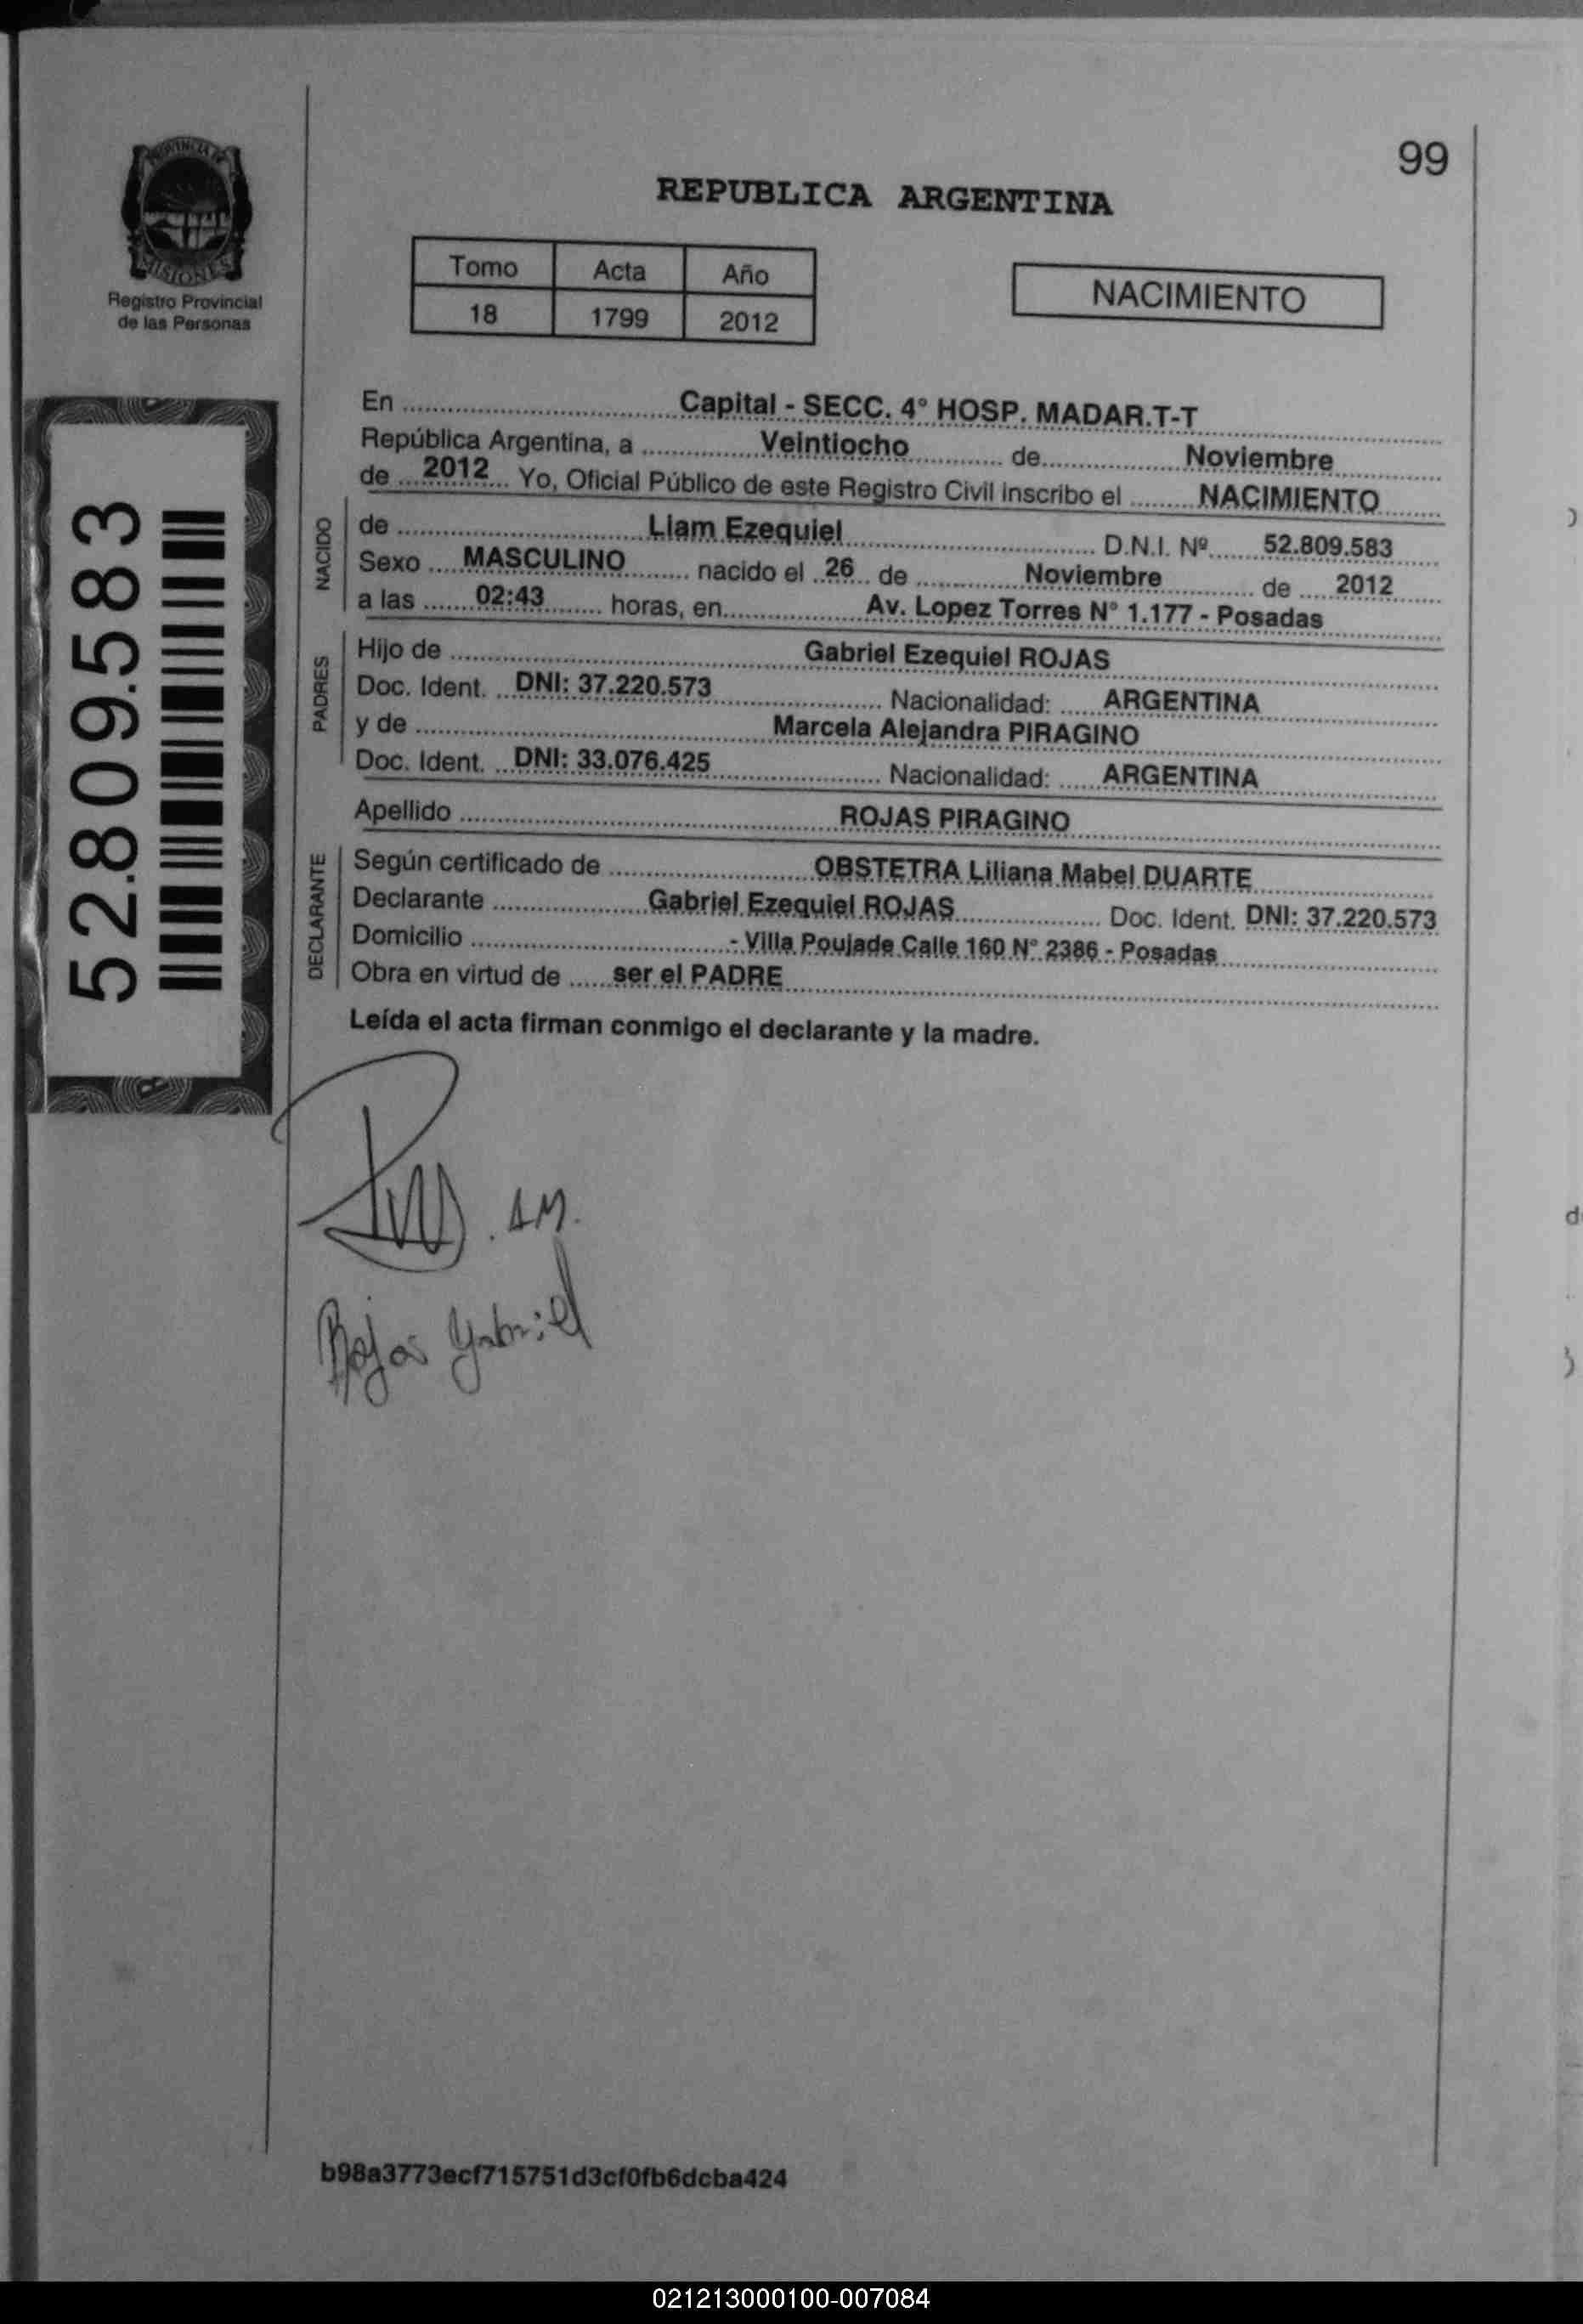 99
REPUBLICA ARGENTINA
PROVINCIA DE
MISIONES
Registro Provincial
de las Personas
Tomo Acta Año
18 1799 2012
NACIMIENTO
52.809.583
En Capital - SECC. 4° HOSP. MADAR.T-T
República Argentina, a Veintiocho de Noviembre
de 2012 Yo, Oficial Público de este Registro Civil inscribo el NACIMIENTO
NACIDO
de Liam Ezequiel D.N.I. Nº 52.809.583
Sexo MASCULINO nacido el 26 de Noviembre de 2012
a las 02:43 horas, en Av. Lopez Torres N° 1.177 - Posadas
PADRES
Hijo de Gabriel Ezequiel ROJAS
Doc. Ident. DNI: 37.220.573 Nacionalidad: ARGENTINA
y de Marcela Alejandra PIRAGINO
Doc. Ident. DNI: 33.076.425 Nacionalidad: ARGENTINA
Apellido ROJAS PIRAGINO
DECLARANTE
Según certificado de OBSTETRA Liliana Mabel DUARTE
Declarante Gabriel Ezequiel ROJAS Doc. Ident. DNI: 37.220.573
Domicilio - Villa Poujade Calle 160 N° 2386 - Posadas
Obra en virtud de ser el PADRE
Leída el acta firman conmigo el declarante y la madre.
Rojas Gabriel
b98a3773ecf715751d3cf0fb6dcba424
021213000100-007084